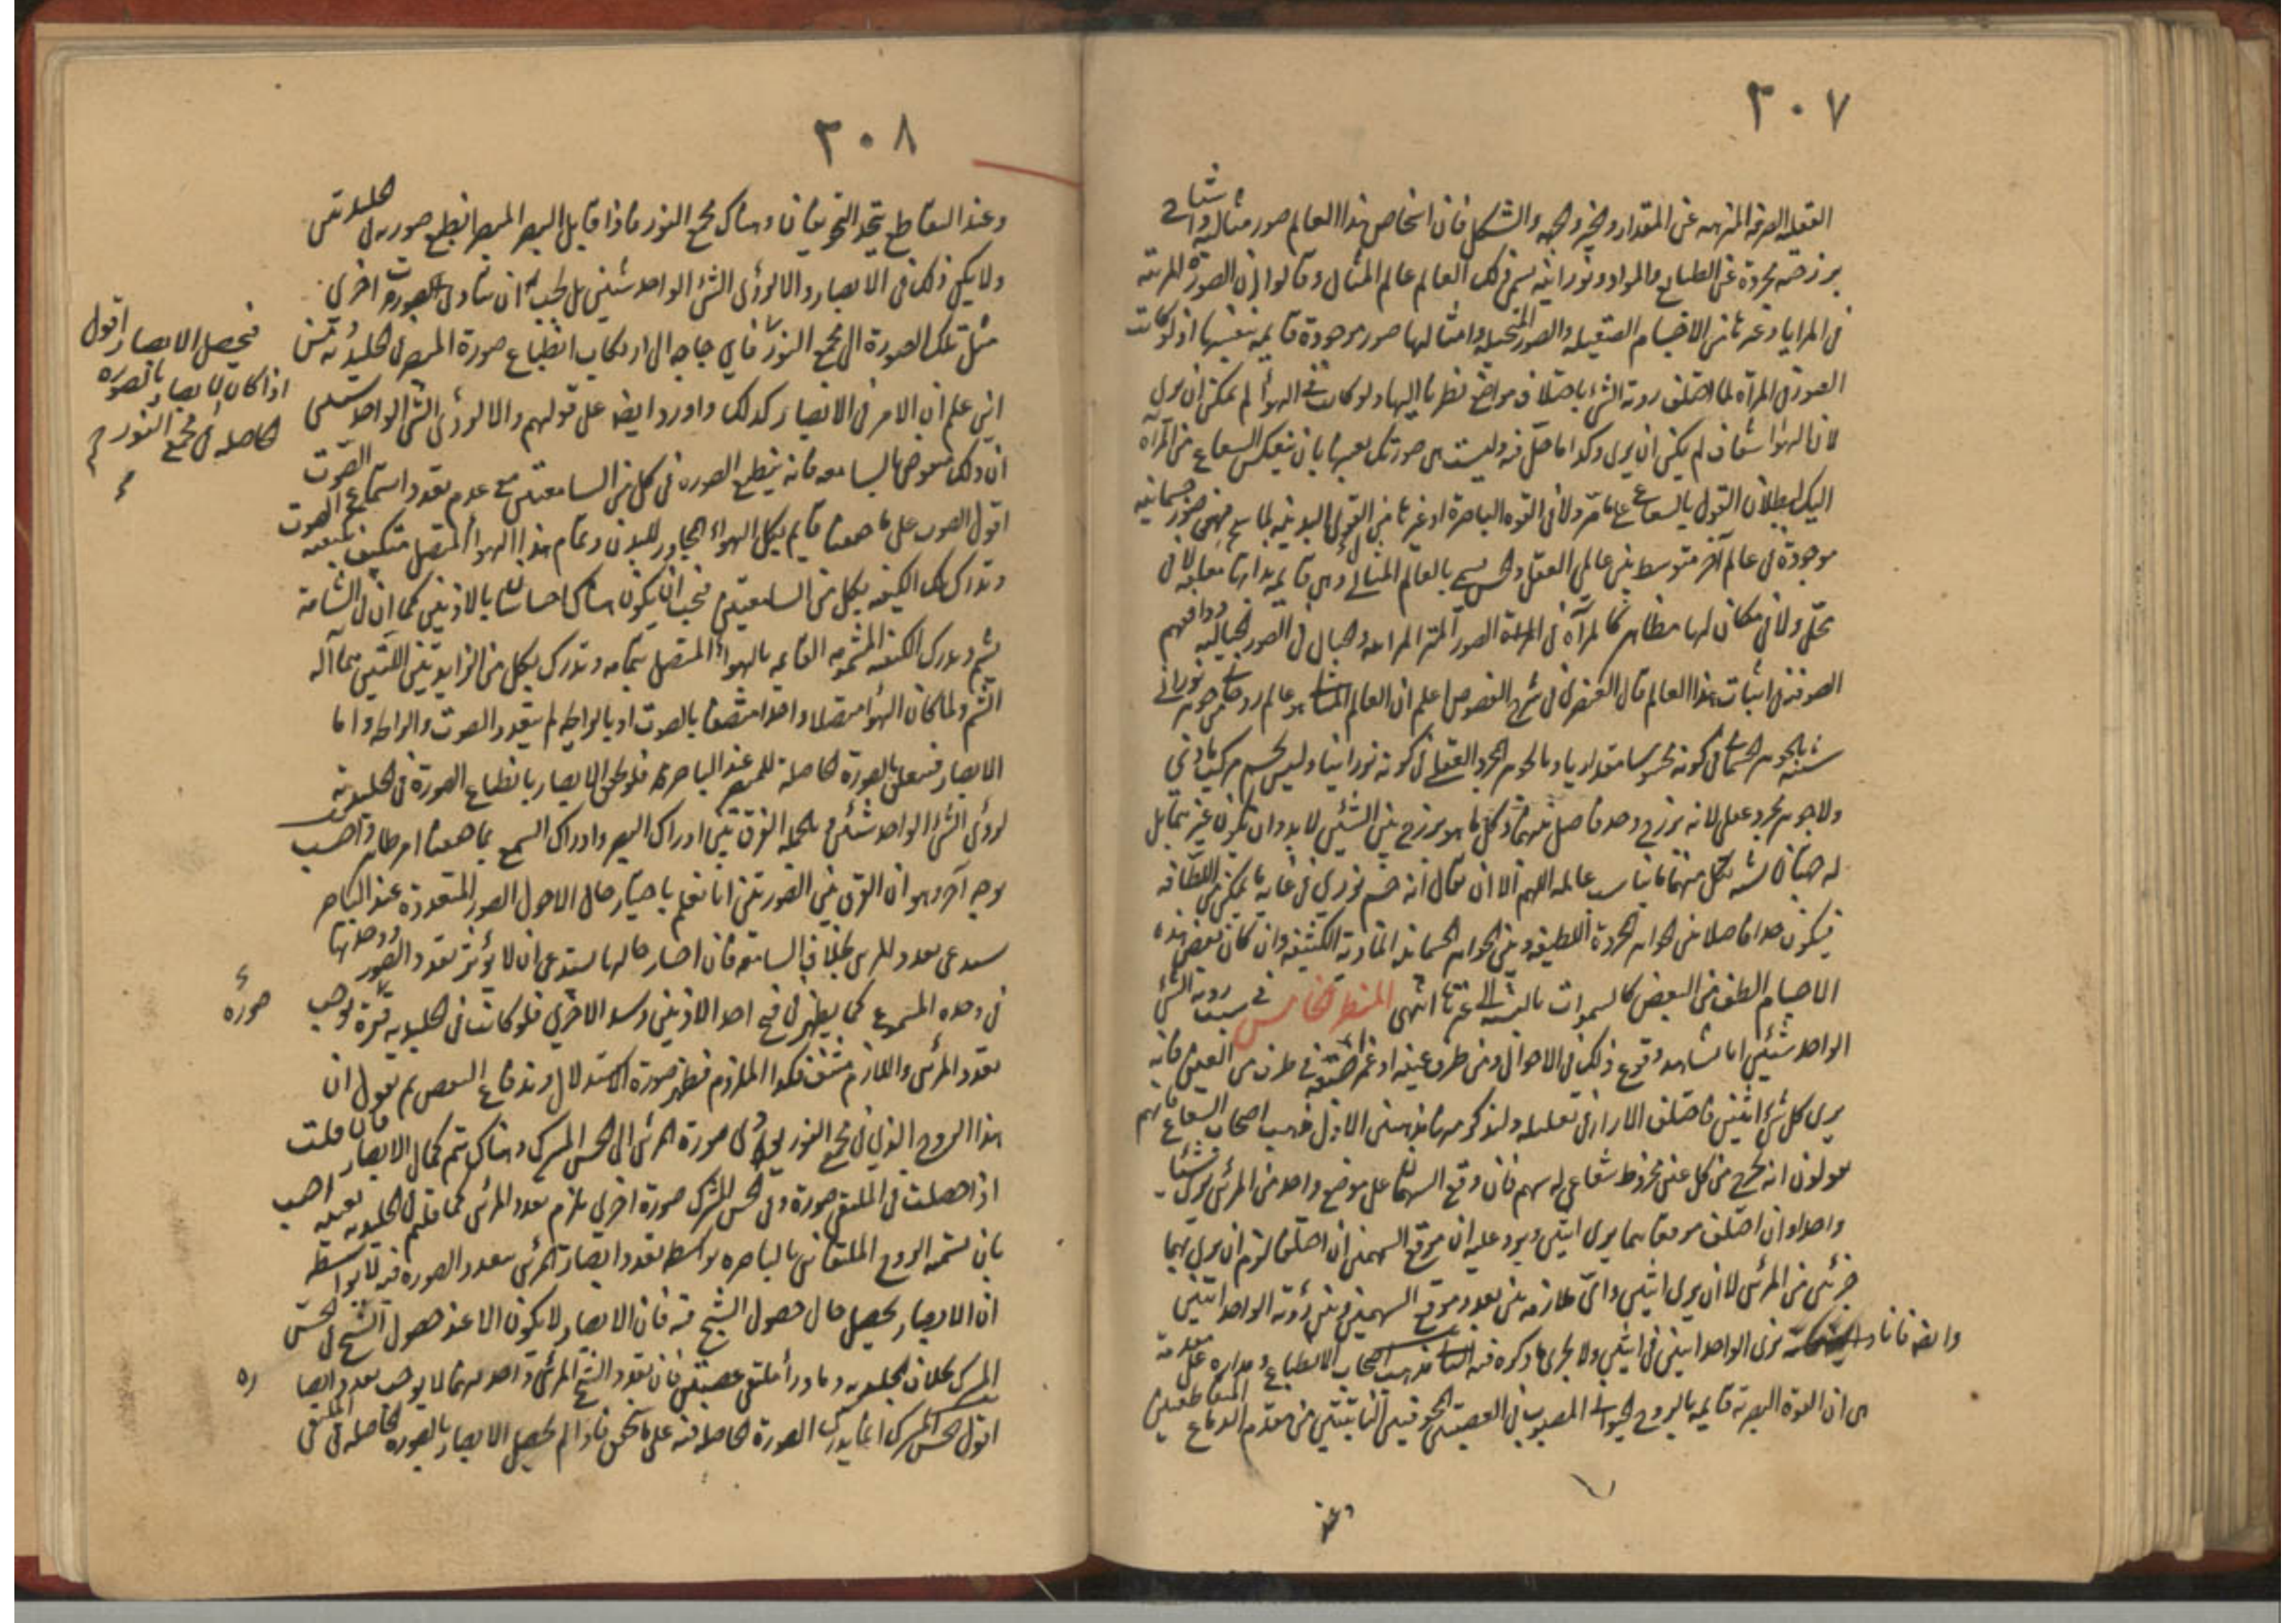 ٣٠٧
العقلية الصرفة المنزهة عن المقدار والحيز والجهة والشكل فان اشخاص هذا العالم صور مثالية واشباح
برزخية مجردة عن الطبايع والمواد ونورانية يسمى ذلك العالم عالم المثال وقالوا ان الصورة المرئية
في المرايا وغيرها من الاجسام الصقيلة والصور المتخيلة وامثالها صور موجودة قايمة بنفسها اذ لو كانت
الصورة في المرآة لما اختلف رؤية الشئ باختلاف مواضع نظرنا اليها ولو كانت في الهوأ لم يمكن ان يرى
لان الهوا شفاف لم يكن ان يرى وكذا ما حل فيه وليست هي صورتك بعينها بان ينعكس الشعاع من المرآة
اليك لبطلان القول بالشعاع على ما مر ولا في القوة الباصرة او غيرها من القوى البدنية لما فهي صور جسمانية
موجودة في عالم آخر متوسط بين عالمي العقل والحس يسمى بالعالم المثالي وهي قايمة بذاتها معلقة لا في
محل ولا في مكان لها مظاهر كالمرآة في الصور المرآتية والخيال في الصور الخيالية ووافقهم
الصوفية في اثبات هذا العالم قال القيصري في شرح الفصوص اعلم ان العالم المثالي هو عالم روحاني من جوهر نوراني
شبيه بالجوهر الجسماني في كونه محسوسا مقداريا وبالجوهر المجرد العقلي في كونه نورانيا وليس بجسم مركب مادي
ولا جوهر مجرد عقلي لانه برزخ وحد فاصل بينهما وكل ما هو برزخ بين الشيئين لا بد وان يكون غيرهما بل
له جهتان يشبه بكل منهما ما يناسب عالمه اللهم الا ان يقال انه جسم نوري في غاية ما يمكن من اللطافة
فيكون حدا فاصلا بين الجواهر المجردة اللطيفة وبين الجواهر الجسمانية المادية الكثيفة وان كان بعض هذه
الاجسام الطف من البعض كالسموات بالنسبة الى غيرها انتهى المنظر الخامس في سبب رؤية الشئ
الواحد شيئين انا نشاهد وقوع ذلك في الاحوال ومن طرف عينه او غمز في طرف من العين فانه
يرى كل شئ اثنين فاختلف الارا في تعليله ولنذكر مها مذهبين الاول مذهب اصحاب الشعاع فانهم
يقولون انه يخرج من كل عين مخروط شعاعي له سهم فان وقع السهمان على موضع واحد من المرئى يرى شيئا
واحدا وان اختلف موقعاهما يرى اثنين ويرد عليه ان موقع السهمين ان اختلفا لزم ان يرى بهما
جزئى من المرئى لا ان يرى اثنين واى ملازمة بين تعدد موقع السهمين وبين رؤية الواحد اثنين
وايضا فانا نرى الواحد اثنين في اثنين ولا يجرى ما ذكره فيه مذهب اصحاب الانطباع ومداره على مقدمة
هي ان القوة البصرية قايمة بالروح الحيوانى المصبوب في العصبتين المجوفتين النابتتين من مقدم الدماغ المتقاطعتين
وعند
٣٠٨
وعند التقاطع يتحد التجويفان وهناك مجمع النور فاذا قابل البصر المبصر انطبع صورته في الجليديتين
ولا يكفي ذلك في الابصار والا لرؤى الشئ الواحد شيئين بل يجب ان يتادى الصورة اخرى
مثل تلك الصورة الى مجمع النور فاى حاجة الى ارتكاب انطباع صورة المبصر في الجليديتين
انى علم ان الامر في الابصار كذلك واورد ايضا على قولهم والا لرؤى الشئ الواحد شيئين
ان ذلك منقوض بالسامعة فانه ينطبع الصورة في كل من السامعتين مع عدم تعدد استماع الصوت
اقول الصوت على ما حققنا قايم بكل الهواء المجاور للبدن وتمام هذا الهوأ المتصل متكيف بكيفية الصوت
وتدرك تلك الكيفية بكل من السامعتين فيجب ان يكون هناك احساسان بالاذنين كما ان في الشامة
يشم ويدرك الكيفية المشمومة القايمة بالهواء المتصل بتمامه ويدرك بكل من الزايدتين اللتين هما آلة
الشم ولما كان الهوأ متصلا واحدا متصفا بالصوت او بالرايحة لم يتعدد الصوت والرايحة واما
الابصار فيتعلق بالصورة الحاصلة للمبصر عند الباصرة فلو تحقق الابصار بانطباع الصورة في الجليدية
لرؤى الشئ الواحد شيئين وبالجملة الفرق بين ادراك البصر وادراك السمع بما حققنا امر ظاهر واجيب
بوجه آخر وهو ان الفرق بين الصورتين انا نعلم باختبار حال الاحول الصور المتعددة عند الباصرة
يستدعى تعدد المرئى بخلاف السامعة فان اختبار حالها يستدعى ان لا يؤثر تعدد الصور ووحدتها
في وحدة المسموع كما يظهر في فتح احد الاذنين وسد الاخرى فلو كانت في الجليدية صورة يوجب
تعدد المرئى واللازم منتف فكذا الملزوم فظهر صورة الاستدلال واندفاع النقض ثم نقول ان
هذا الروح الذي في مجمع النور يؤدى صورة المرئى الى الحس المشترك وهناك يتم كمال الابصار فان قلت
اذا حصلت في الملتقى صورة وفي الحس المشترك صورة اخرى يلزم تعدد المرئى كما قلتم في الجليدية بعينه اجيب
بان تسمية الروح الملتقى بالباصرة بواسطة تعدد ابصار المرئى بتعدد الصورة فيه لا بواسطة
ان الابصار يحصل حال حصول الشبح فيه فان الابصار لا يكون الا عند حصول الشبح في الحس
المشترك بخلاف الجليدية وما ورأ ملتقى عصبتين فان تعدد الشبح المرئى واحد بهما لا يوجب تعدد ابصاره
اقول الحس المشترك انما يدرك الصورة الحاصلة فيه على ما تحقق فاذا لم يحصل الابصار بالصورة الحاصلة في الملتقى
فيحصل الابصار اقول
اذا كان الابصار بالصورة
الحاصلة في مجمع النور
صورة